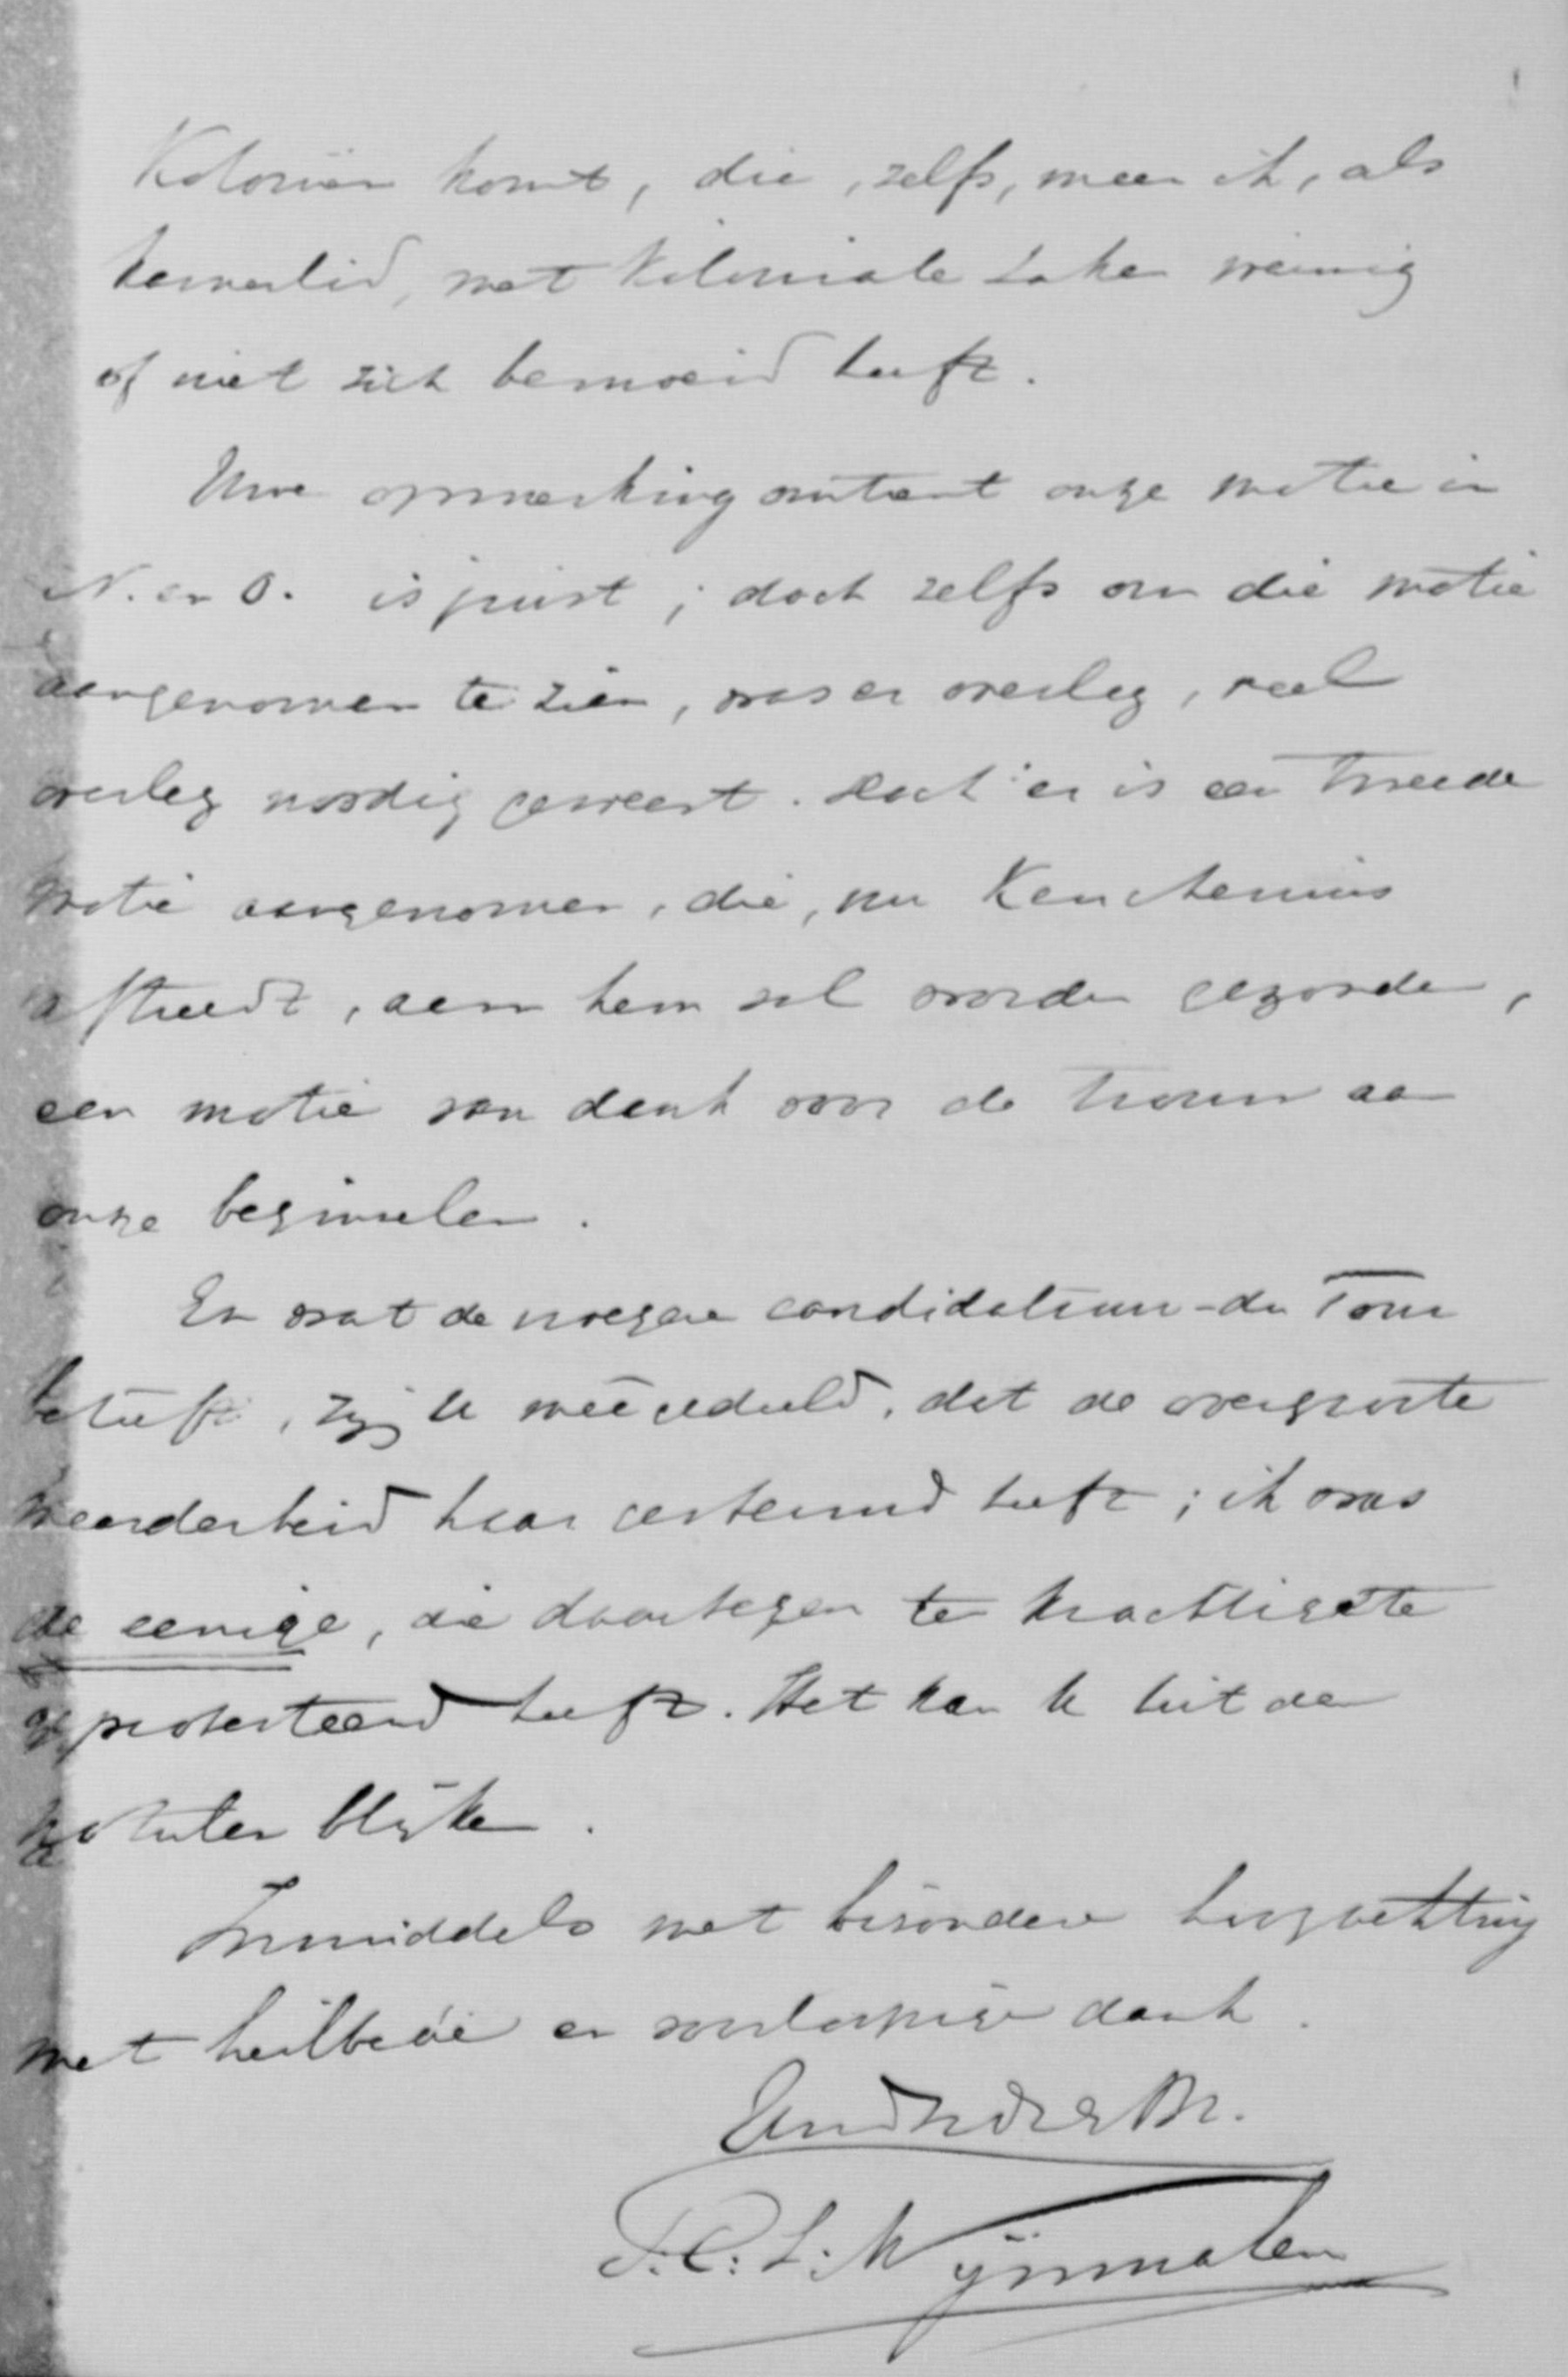 Koloniën komt, die, zelfs, meen ik, als
kamerlid, met Koloniale zaken weinig
of niet zich bemoeid heeft.
Uwe opmerking omtrent onze motie in
N. en O. is juist; doch zelfs om die motie
aangenomen te zien, was er overleg, veel
overleg noodig geweest. Doch er is een tweede
motie aangenomen, die, nu Keuchenius
aftreedt, aan hem zal worden gezonden,
een motie van dank voor de trouw aan
onze beginselen.
En wat de vroegere candidatuur-du Tour
betreft, zij U meêgedeeld, dat de overgroote
meerderheid haar gesteund heeft; ik was
de eenige, die daartegen ten krachtigste
geprotesteerd heeft. Het kan U uit de
notulen blijken.
Inmiddels met bizondere hoogachting
met heilbeê en voorloopigen dank.
Uw
T. C. L. Wijnmalen